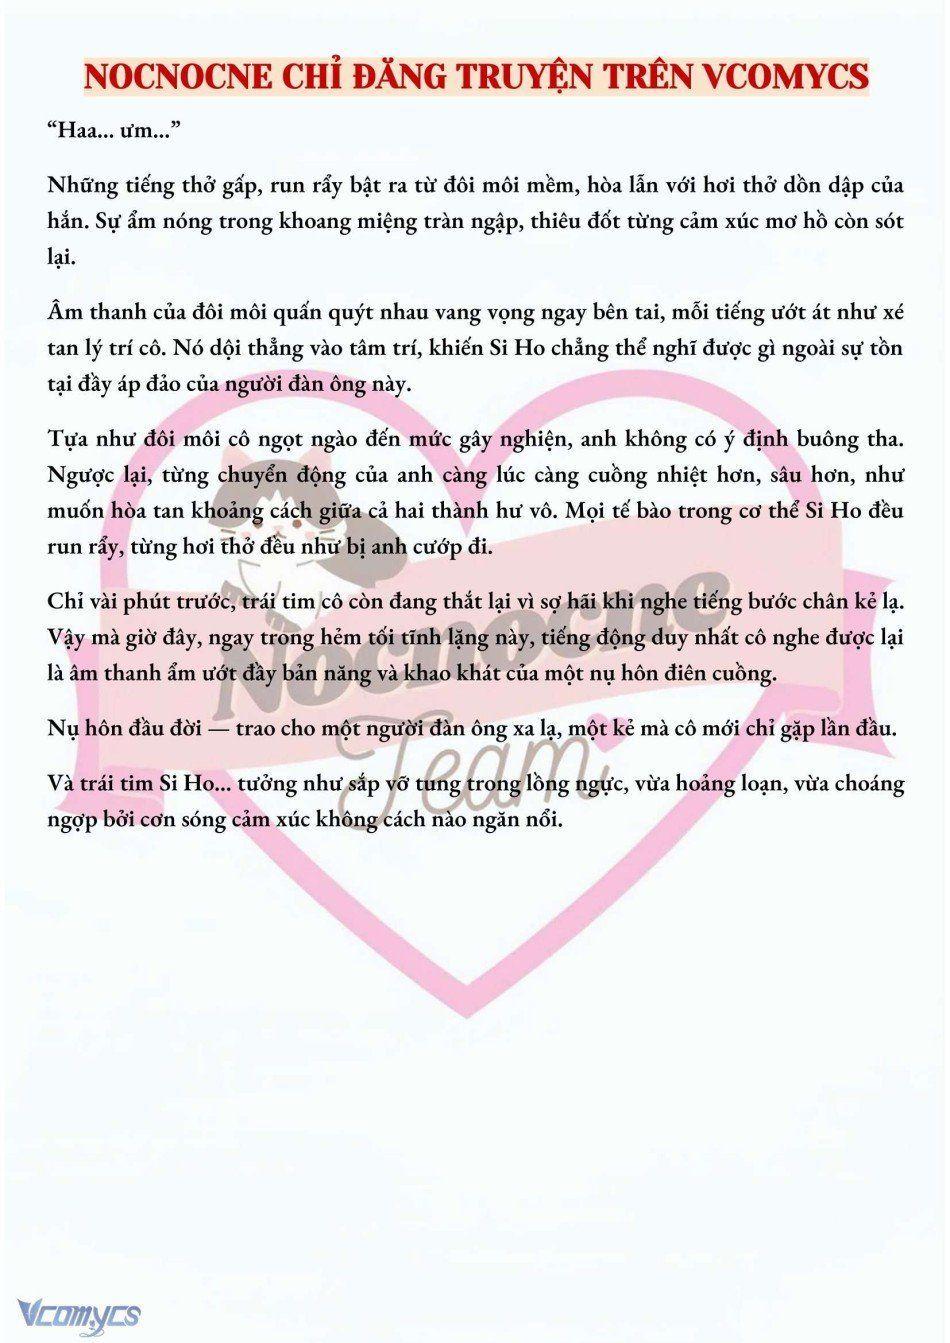 NOCNOCNE CHỈ ĐĂNG TRUYỆN TRÊN VCOMYCS
“Haa... ưm...”
Những tiếng thở gấp, run rẩy bật ra từ đôi môi mềm, hòa lẫn với hơi thở dồn dập của
hắn. Sự ẩm nóng trong khoang miệng tràn ngập, thiêu đốt từng cảm xúc mơ hồ còn sót
lại.
Âm thanh của đôi môi quấn quýt nhau vang vọng ngay bên tai, mỗi tiếng ướt át như xé
tan lý trí cô. Nó dội thẳng vào tâm trí, khiến Si Ho chẳng thể nghĩ được gì ngoài sự tồn
tại đầy áp đảo của người đàn ông này.
Tựa như đôi môi cô ngọt ngào đến mức gây nghiện, anh không có ý định buông tha.
Ngược lại, từng chuyển động của anh càng lúc càng cuồng nhiệt hơn, sâu hơn, như
muốn hòa tan khoảng cách giữa cả hai thành hư vô. Mọi tế bào trong cơ thể Si Ho đều
run rẩy, từng hơi thở đều như bị anh cướp đi.
Chỉ vài phút trước, trái tim cô còn đang thắt lại vì sợ hãi khi nghe tiếng bước chân kẻ lạ.
Vậy mà giờ đây, ngay trong hẻm tối tĩnh lặng này, tiếng động duy nhất cô nghe được lại
là âm thanh ẩm ướt đầy bản năng và khao khát của một nụ hôn điên cuồng.
Nụ hôn đầu đời — trao cho một người đàn ông xa lạ, một kẻ mà cô mới chỉ gặp lần đầu.
Và trái tim Si Ho... tưởng như sắp vỡ tung trong lồng ngực, vừa hoảng loạn, vừa choáng
ngợp bởi cơn sóng cảm xúc không cách nào ngăn nổi.
Nocnocne
Team
Vcomycs